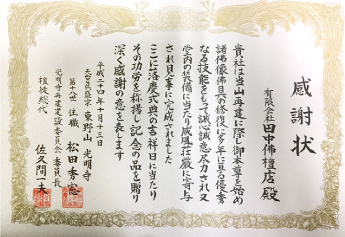 感謝状
有限会社 田中佛檀店殿
貴社は当山再建に際し御本尊を始め
諸佛像佛具の修復に多年に亘る優秀
なる技能をもって誠心誠意尽力され又
堂内の装備に当たり威風荘厳に寄与
され見事に完成されました
ここに落慶式典の吉祥日に当たり
その功労を称揚し記念の品を贈り
深く感謝の意を表します
平成二十四年十月十三日
天台真盛宗 東野山 光明寺
第十八世 住職 松田秀
光明寺再建建設委員会委員長
檀徒総代 佐久間一夫